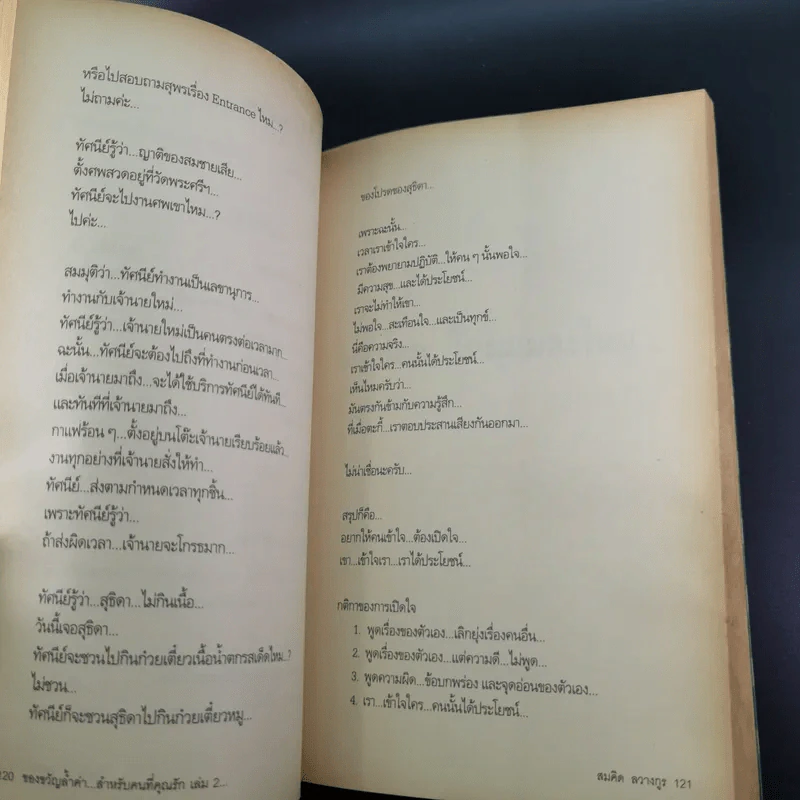 หรือไปสอบถามสุพรเรื่อง Entrance ไหม...?
ไม่ถามค่ะ...
ทัศนีย์รู้ว่า...ญาติของสมชายเสีย...
ตั้งศพสวดอยู่ที่วัดพระศรีฯ...
ทัศนีย์จะไปงานศพเขาไหม...?
ไปค่ะ...
สมมุติว่า...ทัศนีย์ทำงานเป็นเลขานุการ...
ทำงานกับเจ้านายใหม่...
ทัศนีย์รู้ว่า...เจ้านายใหม่เป็นคนตรงต่อเวลามาก...
ฉะนั้น...ทัศนีย์จะต้องไปถึงที่ทำงานก่อนเวลา...
เมื่อเจ้านายมาถึง...จะได้ใช้บริการทัศนีย์ได้ทันที...
และทันทีที่เจ้านายมาถึง...
กาแฟร้อน ๆ...ตั้งอยู่บนโต๊ะเจ้านายเรียบร้อยแล้ว...
งานทุกอย่างที่เจ้านายสั่งให้ทำ...
ทัศนีย์...ส่งตามกำหนดเวลาทุกชิ้น...
เพราะทัศนีย์รู้ว่า...
ถ้าส่งผิดเวลา...เจ้านายจะโกรธมาก...
ทัศนีย์รู้ว่า...สุธิดา...ไม่กินเนื้อ...
วันนี้เจอสุธิดา...
ทัศนีย์จะชวนไปกินก๋วยเตี๋ยวเนื้อน้ำตกรสเด็ดไหม...?
ไม่ชวน...
ทัศนีย์ก็จะชวนสุธิดาไปกินก๋วยเตี๋ยวหมู...
120 ของขวัญล้ำค่า...สำหรับคนที่คุณรัก เล่ม 2...
ของโปรดของสุธิดา...
เพราะฉะนั้น...
เวลาเราเข้าใจใคร...
เราต้องพยายามปฏิบัติ...ให้คน ๆ นั้นพอใจ...
มีความสุข...และได้ประโยชน์...
เราจะไม่ทำให้เขา...
ไม่พอใจ...สะเทือนใจ...และเป็นทุกข์...
นี่คือความจริง...
เราเข้าใจใคร...คนนั้นได้ประโยชน์...
เห็นไหมครับว่า...
มันตรงกันข้ามกับความรู้สึก...
ที่เมื่อตะกี้...เราตอบประสานเสียงกันออกมา...
ไม่น่าเชื่อนะครับ...
สรุปก็คือ...
อยากให้คนเข้าใจ...ต้องเปิดใจ...
เขา...เข้าใจเรา...เราได้ประโยชน์...
กติกาของการเปิดใจ
1. พูดเรื่องของตัวเอง...เลิกยุ่งเรื่องคนอื่น...
2. พูดเรื่องของตัวเอง...แต่ความดี...ไม่พูด...
3. พูดความผิด...ข้อบกพร่อง และจุดอ่อนของตัวเอง...
4. เรา...เข้าใจใคร...คนนั้นได้ประโยชน์...
สมคิด ลวางกูร 121